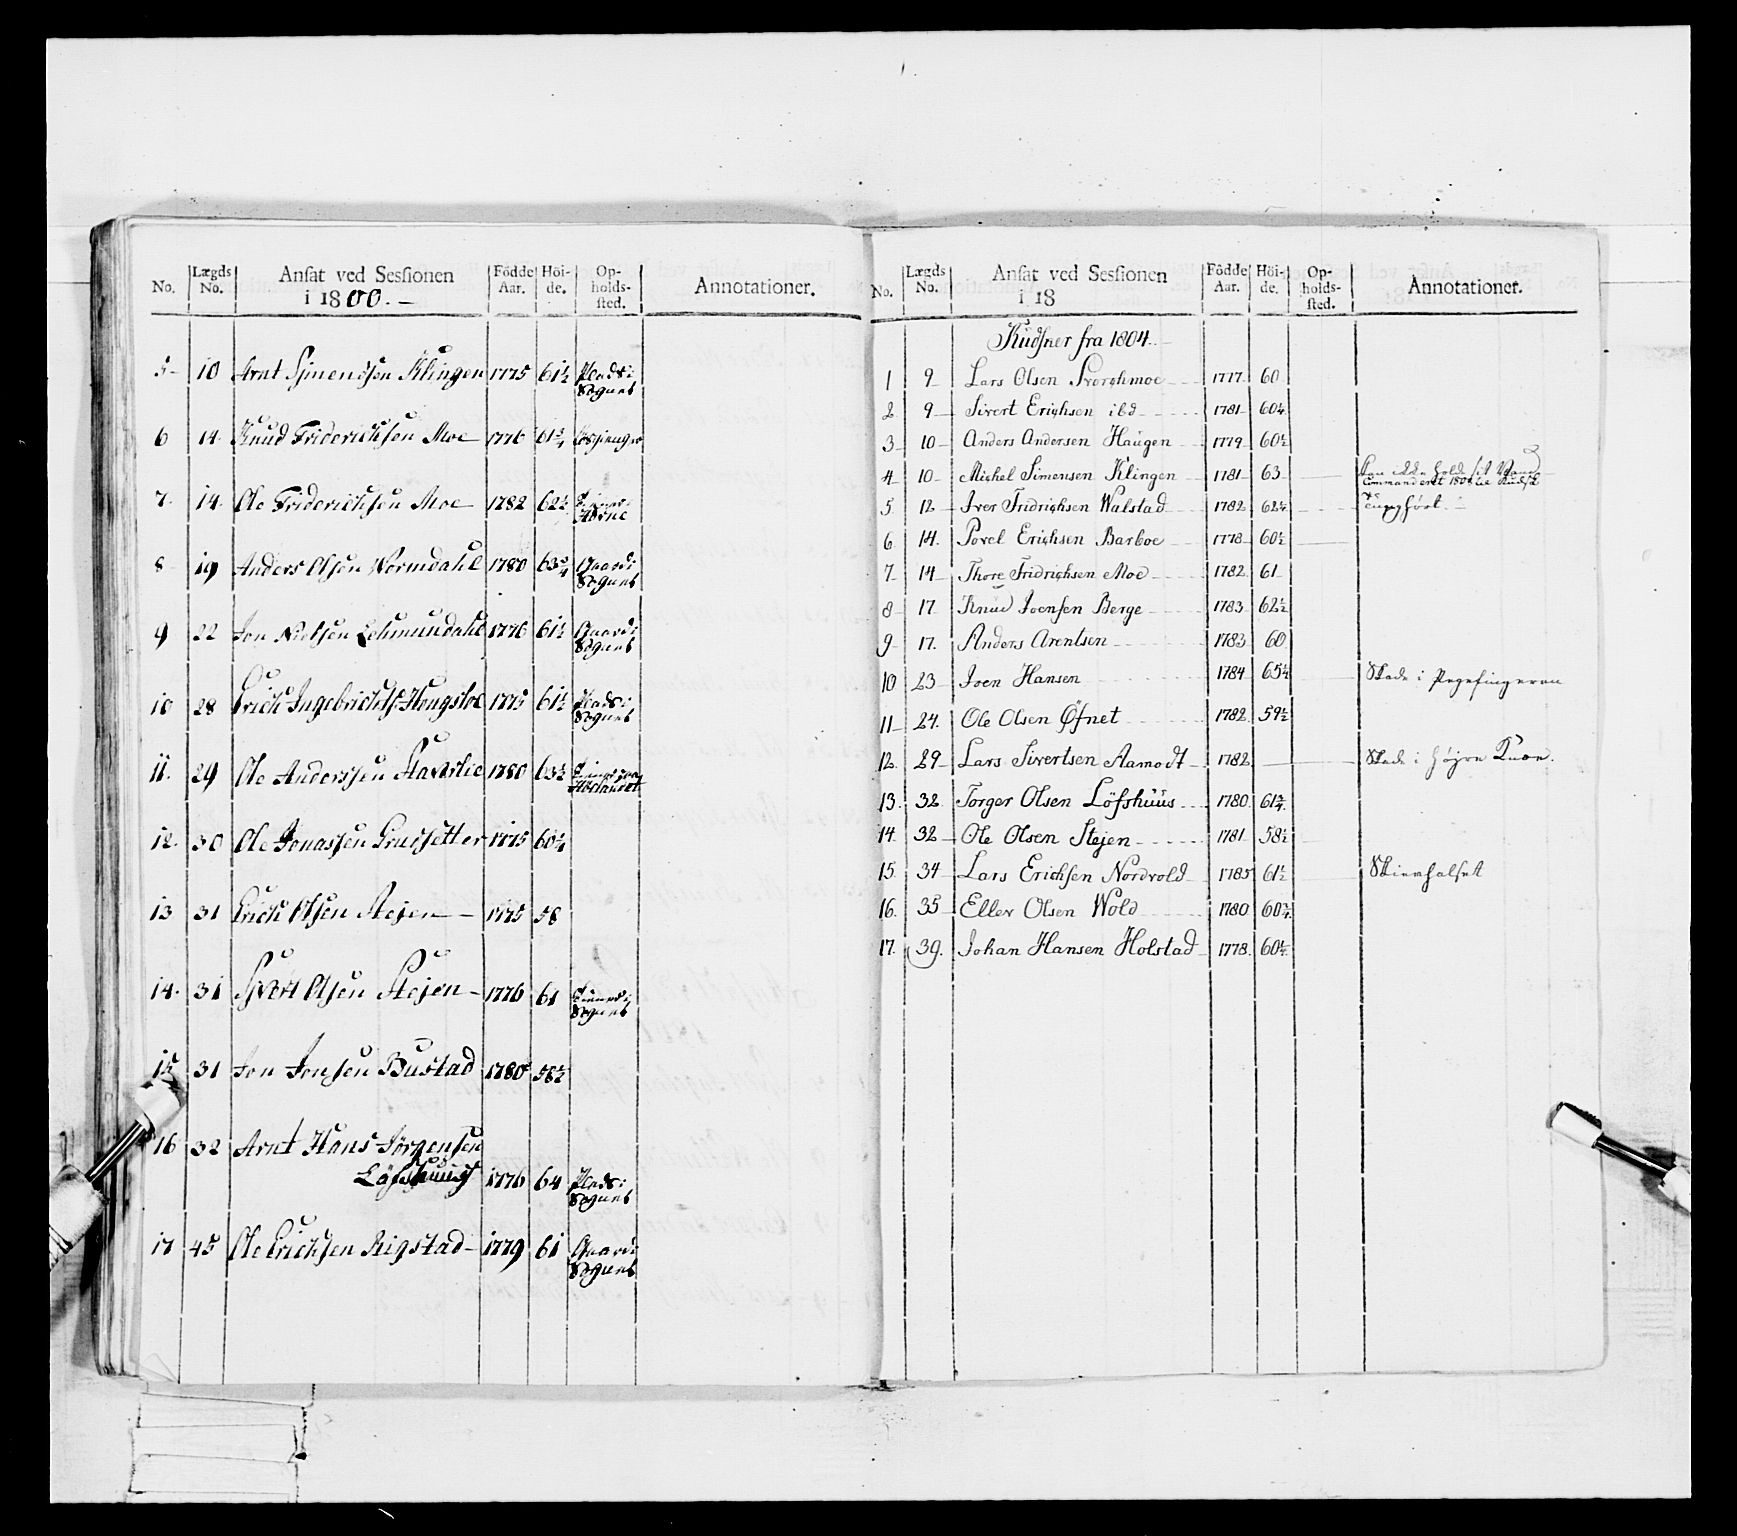 No. Lægds No. Ansat ved Sessionen i 1800. Födde Aar. Höi-de. Op-holds-sted. Annotationer.
5 10 Arnt Simensen Klingen 1775 61½ Plads i Sognet
6 14 Knud Friderichsen Moe 1776 61¾
7 14 Ole Friderichsen Moe 1782 62½
8 19 Anders Olsen Wormdahl 1780 63¾ Gaard i Sognet
9 22 Jon Nielsen Lehmundahl 1776 61½ Gaard i Sognet
10 28 Erich Ingebrichts. Hongsloe 1775 61½ Plads i Sognet
11. 29 Ole Anderssen Haverlie 1780 63½
12. 30 Ole Jonassen Grudsetter 1775 60¼
13 31 Erich Olsen Stejen 1775 58
14. 31 Sivert Olsen Stejen 1776 61 Tiener i Sognet
15 31 Jon Jonsen Bustad 1780 58½
16 32 Arnt Hans Jörgensen
Löfshuus 1776 64 Plads i Sognet
17 45 Ole Erichsen Rigstad 1779 61 Gaard i Sognet
No. Lægds No. Ansat ved Sessionen i 18 Födde Aar. Höi-de. Op-holds-sted. Annotationer.
Kudsker fra 1804.
1 9 Lars Olsen Svorchmoe 1777 60
2 9 Sivert Erichsen ibd 1781 60¼
3 10 Anders Andersen Haugen 1779 60½
4 10 Michel Simensen Klingen 1781 63 Kan ikke holde sit Vand
Commanderet
5 12 Iver Fridrichsen Walstad 1782 62¼
6 14. Povel Erichsen Barboe 1778 60½
7 14 Thore Fridrichsen Moe 1782 61
8 17 Knud Joensen Berge 1783 62½
9 17. Anders Arentsen 1783 60
10 23 Joen Hansen 1784 65¼ Skade i Pegefingeren
11 24. Ole Olsen Øfnet 1782 59½
12. 29 Lars Sivertsen Aamodt 1782 Skade i højre Knæe.
13. 32 Torger Olsen Löfshuus 1780 61¾
14 32 Ole Olsen Stejen 1781 58½
15. 34 Lars Erichsen Nordvold 1785 61½ Skievhalset
16. 35 Eller Olsen Wold 1780 60¾
17. 39. Johan Hansen Holstad 1778 60¼